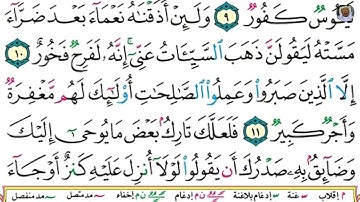 لَيَـُٔوسٌ كَفُورٌ ٩ وَلَئِنْ أَذَقْنَٰهُ نَعْمَآءَ بَعْدَ ضَرَّآءَ
مَسَّتْهُ لَيَقُولَنَّ ذَهَبَ ٱلسَّيِّـَٔاتُ عَنِّىٓ ۚ إِنَّهُۥ لَفَرِحٌ فَخُورٌ ١٠
إِلَّا ٱلَّذِينَ صَبَرُوا۟ وَعَمِلُوا۟ ٱلصَّٰلِحَٰتِ أُو۟لَٰٓئِكَ لَهُم مَّغْفِرَةٌ
وَأَجْرٌ كَبِيرٌ ١١ فَلَعَلَّكَ تَارِكٌۢ بَعْضَ مَا يُوحَىٰٓ إِلَيْكَ
وَضَآئِقٌۢ بِهِۦ صَدْرُكَ أَن يَقُولُوا۟ لَوْلَآ أُنزِلَ عَلَيْهِ كَنزٌ أَوْ جَآءَ
م إقلاب س غنة س إدغام بلاغنة ن م إدغام ن م إخفاء مد متصل مد منفصل